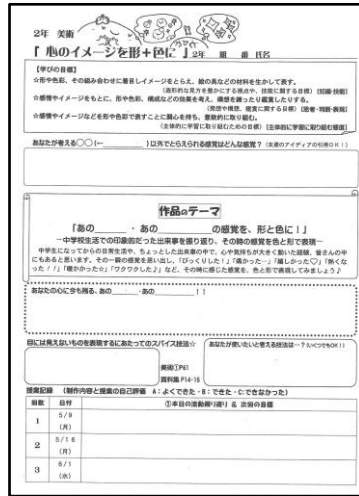 2年 美術
「 心のイメージを形+色に 」2年 組 番 氏名
【学びの目標】
☆形や色彩、その組み合わせに着目しイメージをとらえ、絵の具などの材料を生かして表す。
(造形的な見方を豊かにする視点や、技能に関する目標)【知識・技能】
☆感情やイメージをもとに、形や色彩、構成などの効果を考え、構想を練ったり鑑賞したりする。
(発想や構想、鑑賞に関する目標)【思考・判断・表現】
☆感情やイメージなどを形や色彩で表すことに関心を持ち、意欲的に取り組む。
(主体的に学習に取り組むための目標)【主体的に学習に取り組む態度】
あなたが考える○○(← )以外でとらえられる感覚はどんな感覚? (友達のアイディアの引用OK!)
作品のテーマ
「あの ・あの の感覚を、形と色に!」
―中学校生活での印象的だった出来事を振り返り、その時の感覚を色と形で表現―
中学生になってからの日常生活や、ちょっとした出来事の中で、心や気持ちが大きく動いた経験、皆さんの中
にもあると思います。その一瞬の感覚を思い出し、「びっくりした!」「痛かった…」「嬉しかった♡」「熱くな
った!!」「暖かかった☆」「ワクワクした♪」など、その時に感じた感覚を、色と形で表現してみましょう♪
あなたの心に今も残る、あの ・あの !!
目には見えないものを表現するにあたってのスパイス技法☆
あなたが使いたいと考える技法は…?(いくつでもOK!)
美術①P61
資料集 P14-15
授業記録 (制作内容と授業の自己評価 A:よくできた・B:できた・C:できなかった)
回数 日付 ①本日の活動振り返り & 次回の目標
1 5/9
(月)
2 5/16
(月)
3 6/1
(水)